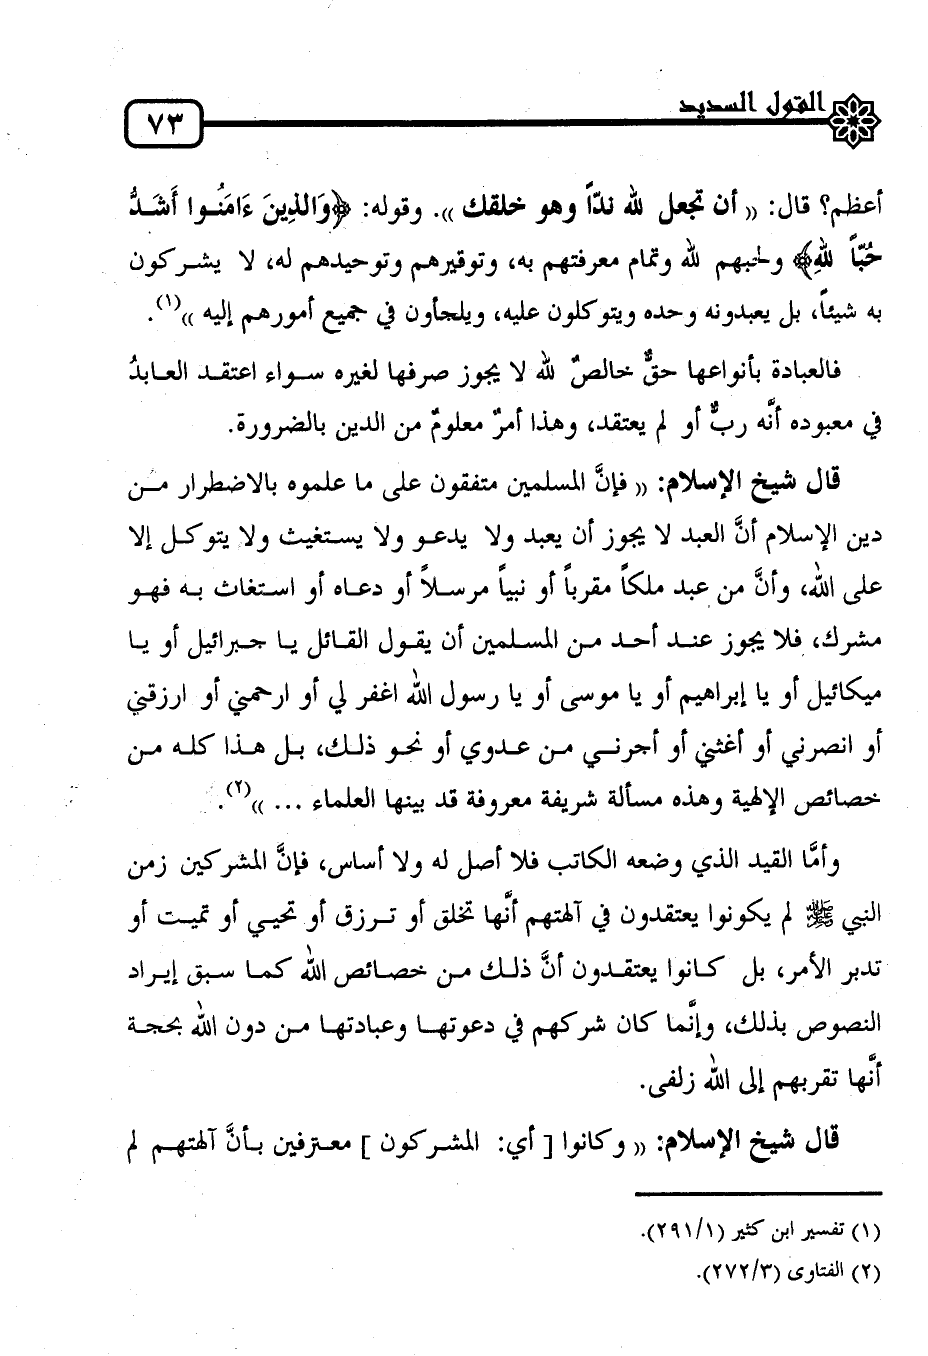 القول السديد
٧٣
أعظم؟ قال: (( أن تجعل لله ندّاً وهو خلقك )). وقوله: ﴿وَالذِينَ ءَامَنُوا أَشَدُّ
حُبّاً لِلَّهِ﴾ ولحبهم لله وتمام معرفتهم به، وتوقيرهم وتوحيدهم له، لا يشركون
به شيئاً، بل يعبدونه وحده ويتوكلون عليه، ويلجأون في جميع أمورهم إليه ))(١).
فالعبادة بأنواعها حقٌّ خالصٌ لله لا يجوز صرفها لغيره سواء اعتقد العابدُ
في معبوده أنَّه ربٌّ أو لم يعتقد، وهذا أمرٌ معلومٌ من الدين بالضرورة.
قال شيخ الإسلام: (( فإنَّ المسلمين متفقون على ما علموه بالاضطرار من
دين الإسلام أنَّ العبد لا يجوز أن يعبد ولا يدعو ولا يستغيث ولا يتوكل إلا
على الله، وأنَّ من عبد ملكاً مقرباً أو نبياً مرسلاً أو دعاه أو استغاث به فهو
مشرك، فلا يجوز عند أحد من المسلمين أن يقول القائل يا جبرائيل أو يا
ميكائيل أو يا إبراهيم أو يا موسى أو يا رسول الله اغفر لي أو ارحمني أو ارزقني
أو انصرني أو أغثني أو أجرني من عدوي أو نحو ذلك، بل هذا كله من
خصائص الإلهية وهذه مسألة شريفة معروفة قد بينها العلماء ... ))(٢).
وأمَّا القيد الذي وضعه الكاتب فلا أصل له ولا أساس، فإنَّ المشركين زمن
النبي ﷺ لم يكونوا يعتقدون في آلهتهم أنَّها تخلق أو ترزق أو تحيي أو تميت أو
تدبر الأمر، بل كانوا يعتقدون أنَّ ذلك من خصائص الله كما سبق إيراد
النصوص بذلك، وإنَّما كان شركهم في دعوتها وعبادتها من دون الله بحجة
أنَّها تقربهم إلى الله زلفى.
قال شيخ الإسلام: (( وكانوا [ أي: المشركون ] معترفين بأنَّ آلهتهم لم
(١) تفسير ابن كثير (٢٩١/١).
(٢) الفتاوى (٢٧٢/٣).